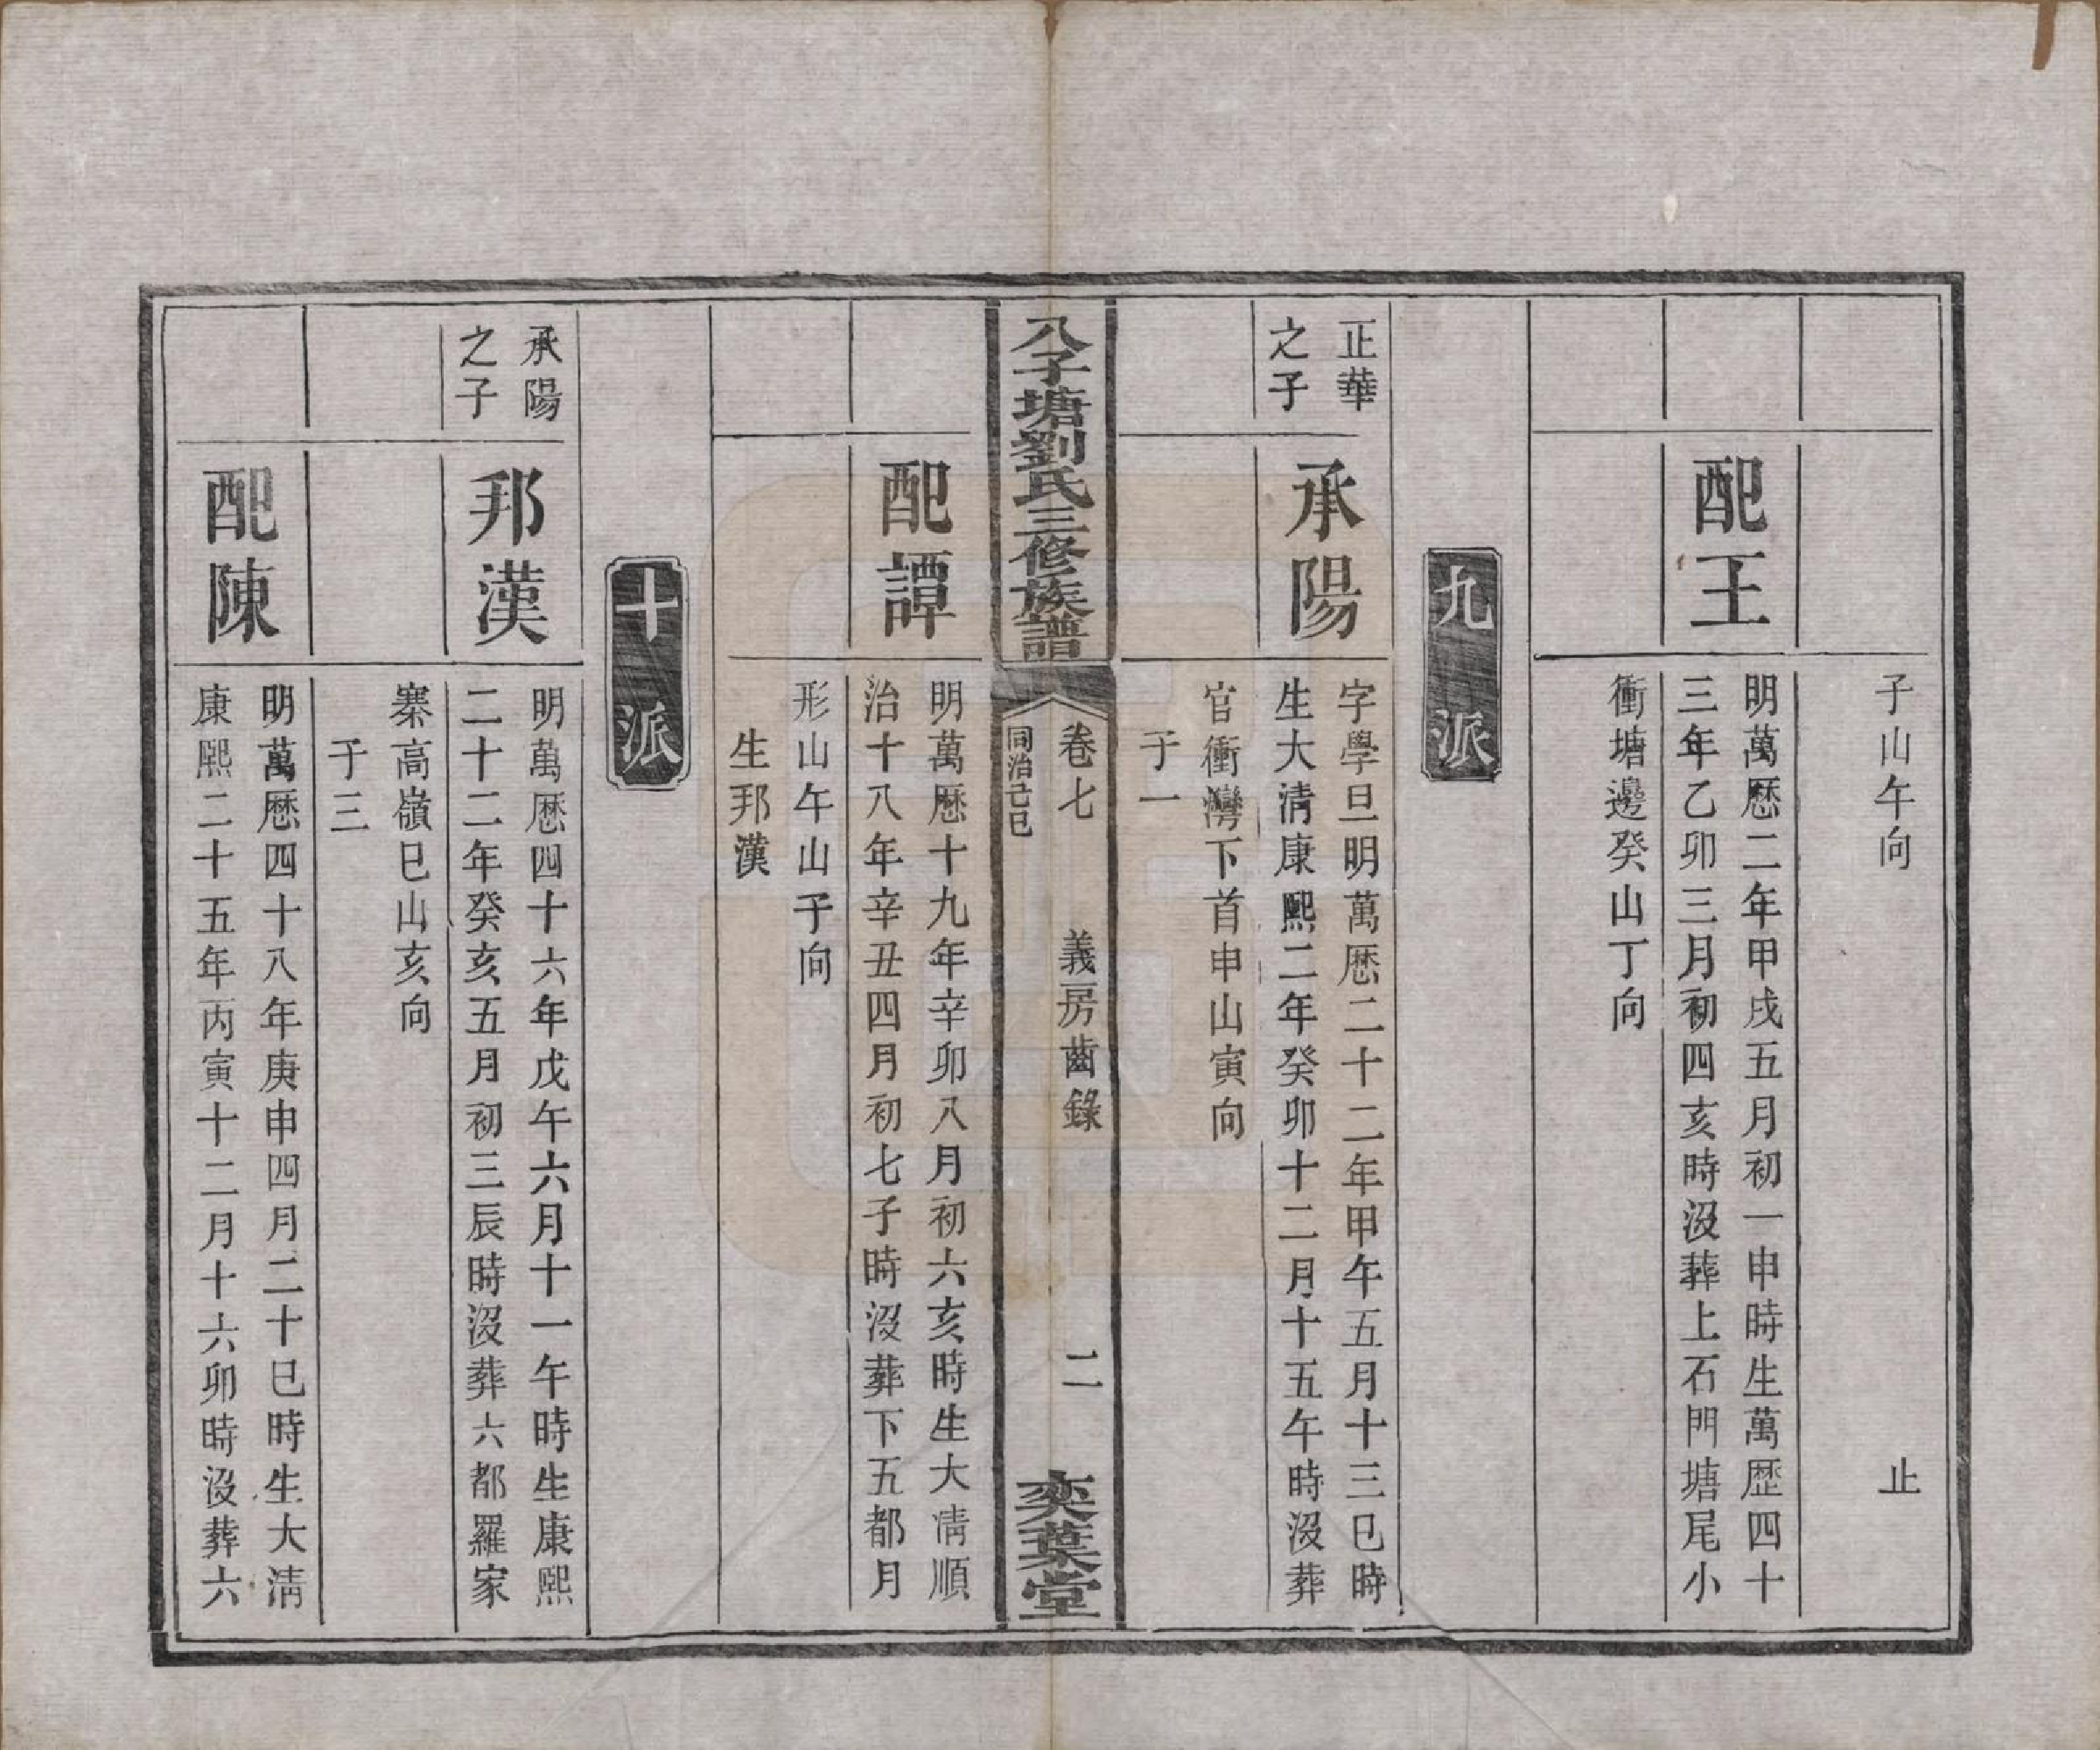 子山午向　止
配王
明萬厯二年甲戌五月初一申時生萬歴四十
三年乙卯三月初四亥時沒葬上石門塘尾小
衝塘邊癸山丁向
九派
正華
之子
承陽
字學旦明萬厯二十二年甲午五月十三巳時
生大清康熙二年癸卯十二月十五午時沒葬
官衝灣下首申山寅向
子一
八子塘劉氏三修族譜
卷七　義房齒錄　二
同治己巳
奕葉堂
配譚
明萬厯十九年辛卯八月初六亥時生大清順
治十八年辛丑四月初七子時沒葬下五都月
形山午山子向
生邦漢
十派
承陽
之子
邦漢
明萬厯四十六年戊午六月十一午時生康熙
二十二年癸亥五月初三辰時沒葬六都羅家
寨高嶺巳山亥向
子三
配陳
明萬厯四十八年庚申四月二十巳時生大清
康熙二十五年丙寅十二月十六卯時沒葬六